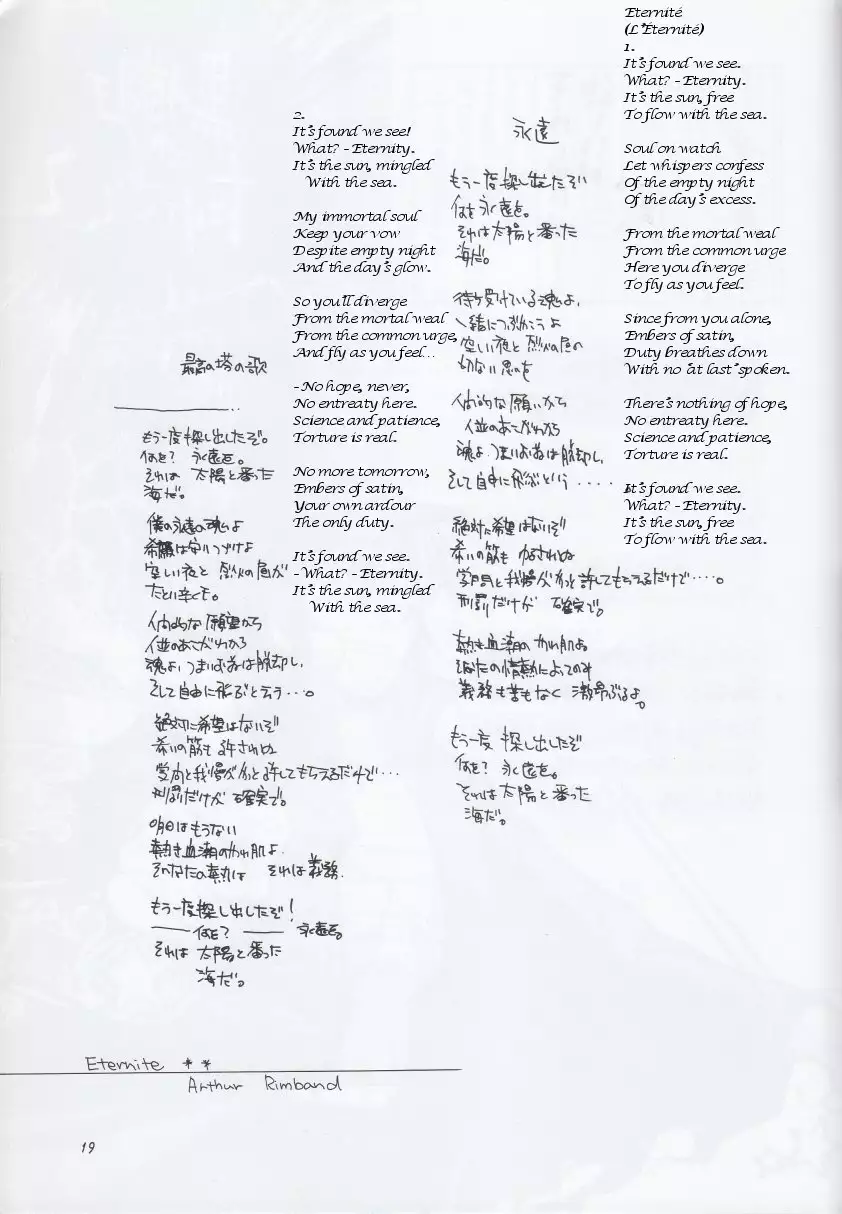 Eternité
(L'Éternité)
1.
It's found we see.
What? - Eternity.
It's the sun, free
To flow with the sea.
Soul on watch
Let whispers confess
Of the empty night
Of the day's excess.
From the mortal weal
From the common urge
Here you diverge
To fly as you feel.
Since from you alone,
Embers of satin,
Duty breathes down
With no 'at last' spoken.
There's nothing of hope,
No entreaty here.
Science and patience,
Torture is real.
It's found we see.
What? - Eternity.
It's the sun, free
To flow with the sea.
永遠
もう一度探し出したぞ
何を 永遠を。
それは太陽と番った
海だ。
待ち受けている魂よ、
一緒につぶやこうよ
空しい夜と烈火の昼の
切ない思いを
人間的な願いから
人並のあこがれから
魂よ、つまりお前は脱却し、
そして自由に飛ぶという・・・・
絶対に希望はないぞ
希いの筋も 許されぬ
学問と我慢がやっと許してもらえるだけで・・・・。
刑罰だけが 確実で。
熱き血潮の やわ肌よ
そなたの情熱によってのみ
義務も苦もなく 激昂ぶるよ。
もう一度 探し出したぞ
何を? 永遠を。
それは太陽と番った
海だ。
2.
It's found we see!
What? - Eternity.
It's the sun, mingled
With the sea.
My immortal soul
Keep your vow
Despite empty night
And the day's glow.
So you'll diverge
From the mortal weal
From the common urge,
And fly as you feel...
- No hope, never,
No entreaty here.
Science and patience,
Torture is real.
No more tomorrow,
Embers of satin,
Your own ardour
The only duty.
It's found we see.
- What? - Eternity.
It's the sun, mingled
With the sea.
最高の塔の歌
もう一度探し出したぞ。
何を? 永遠を。
それは 太陽と番った
海だ。
僕の永遠の魂よ
希願は守りつづけよ
空しい夜と 烈火の昼が
たとい辛くも。
人間的な 願望から
人並のあこがれから
魂よ、つまりお前は脱却し、
そして自由に飛ぶと云う・・・。
絶対に希望はないぞ
希いの筋も 許されぬ
学問と我慢がやっと許してもらえるだけで・・・
刑罰だけが 確実で。
明日はもうない
熱き血潮のやわ肌よ
そなたの熱は それは義務.
もう一度探し出したぞ!
── 何を? ── 永遠を。
それは 太陽と番った
海だ。
Eternite * *
Arthur Rimbaud
19